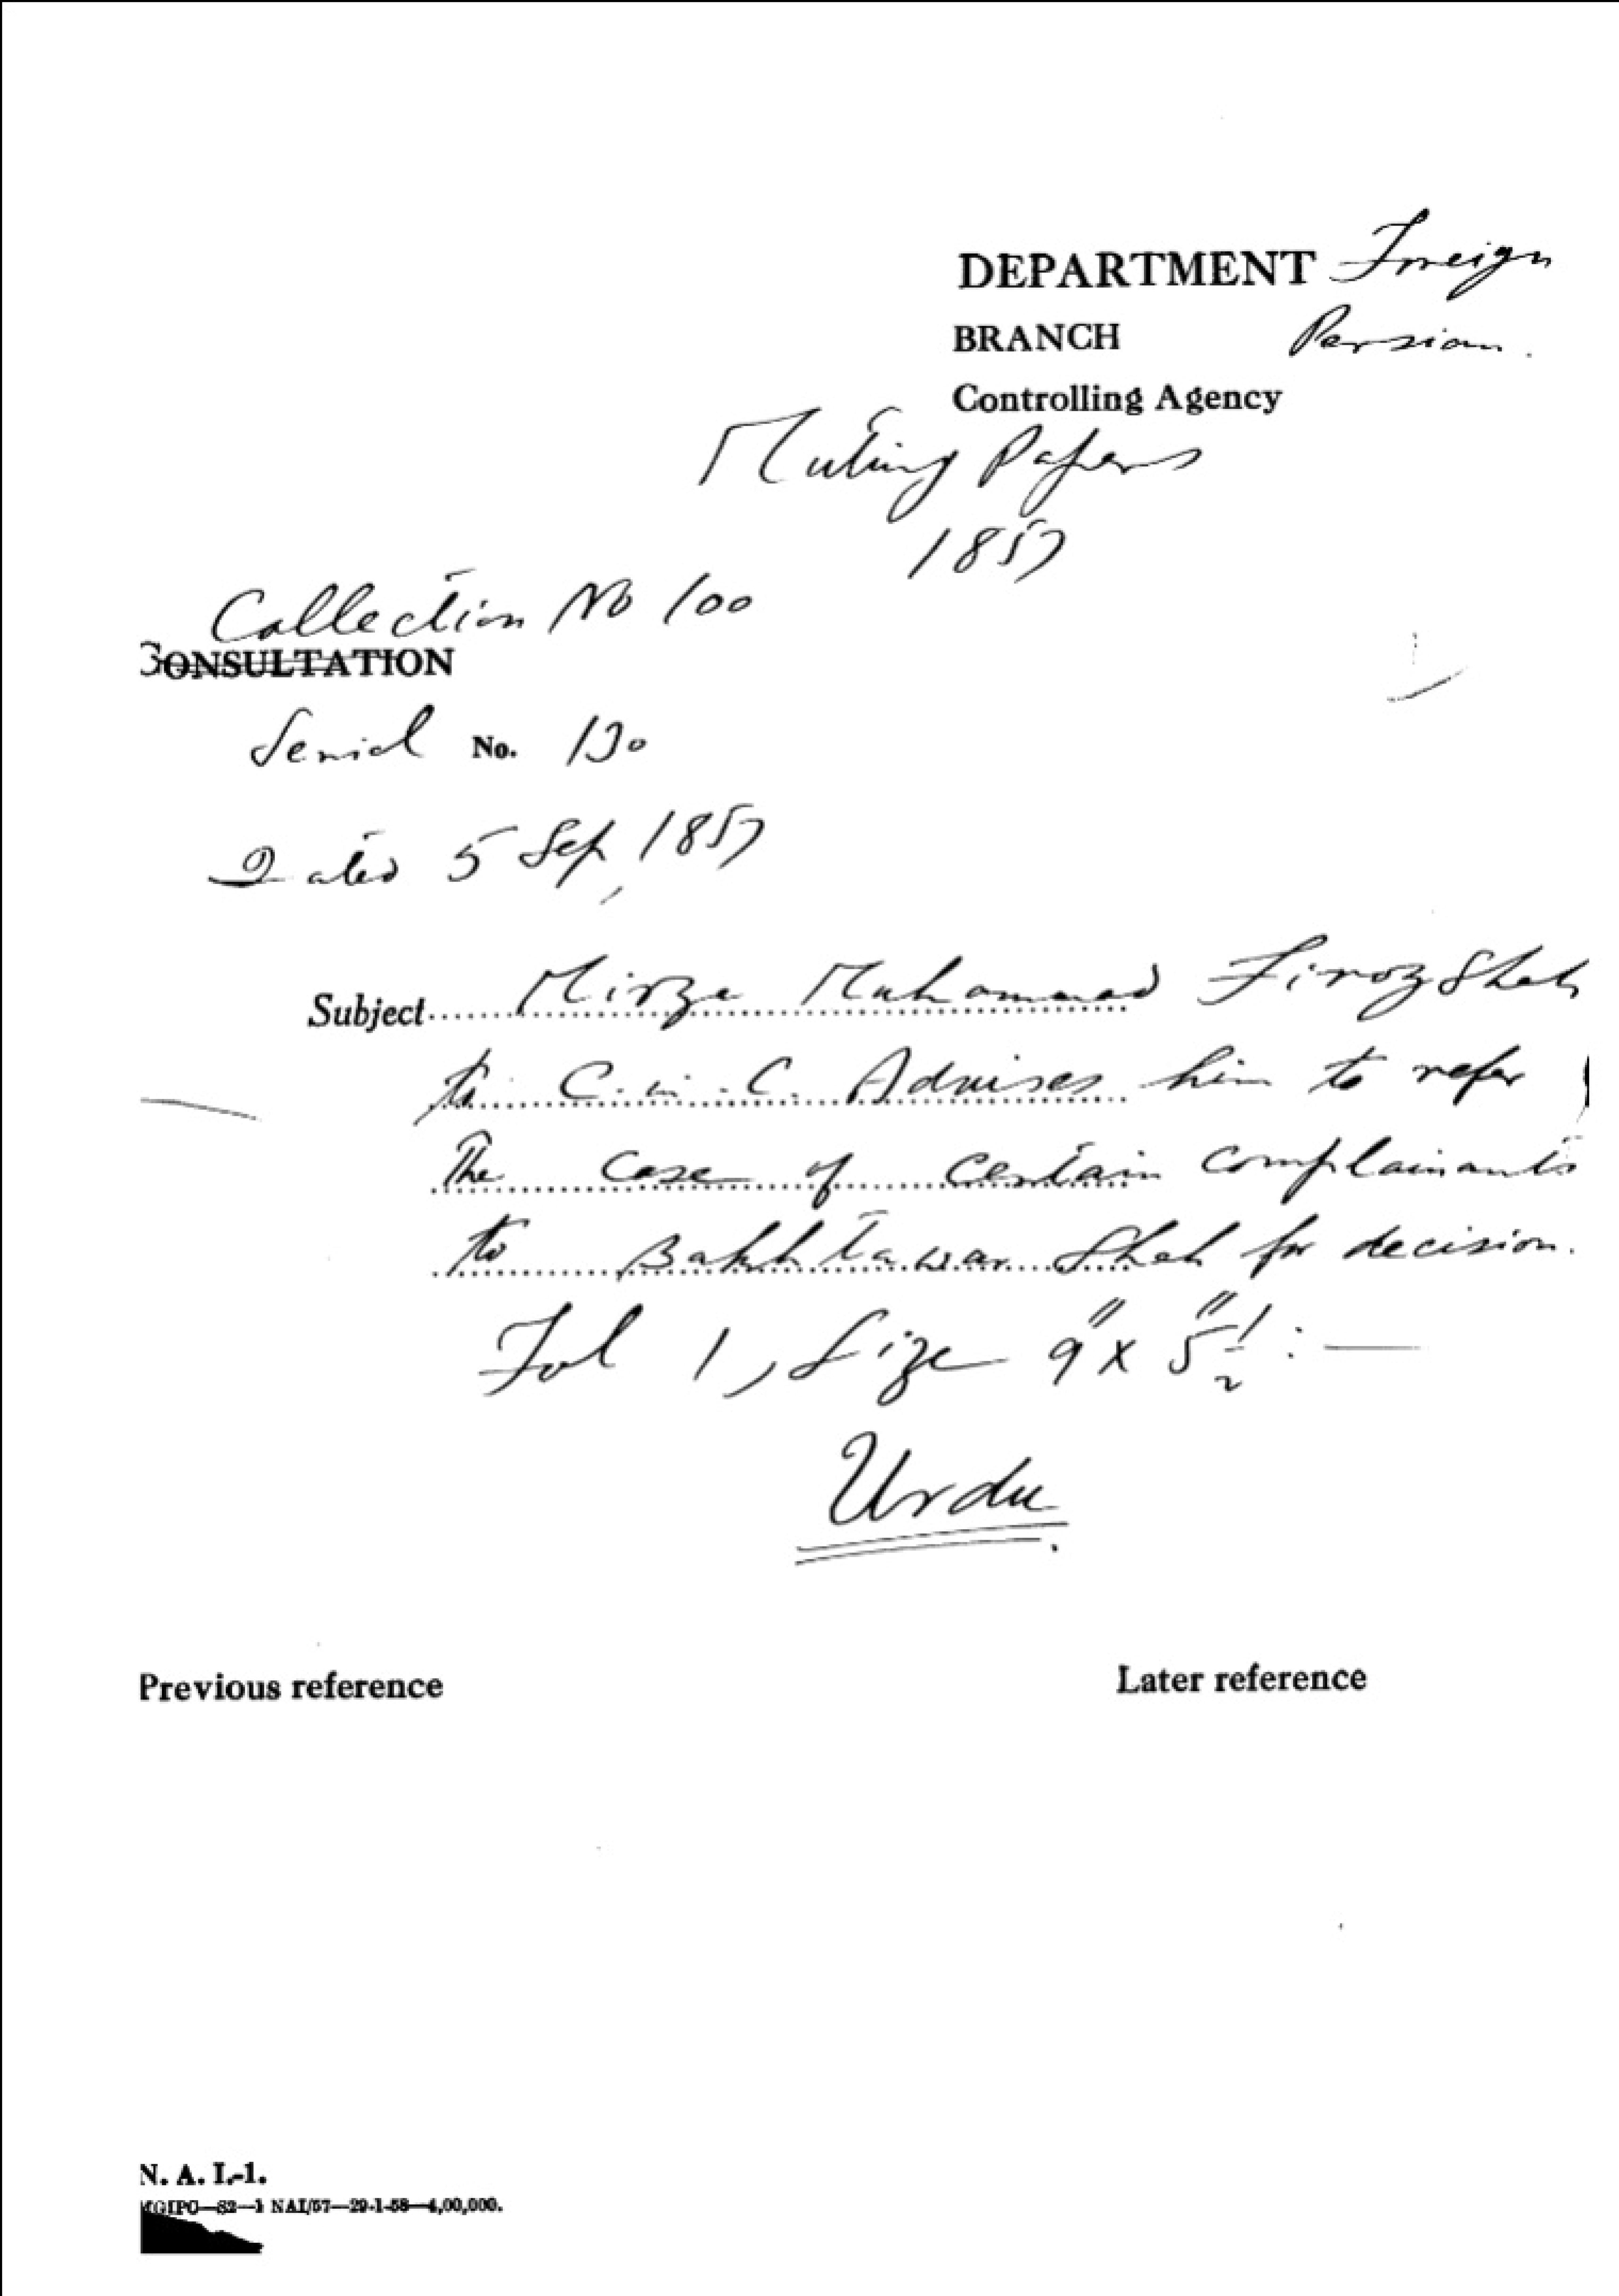 DEPARTMENT Foreign
BRANCH Persian.
Controlling Agency
Mutiny Papers
1857
Collection No 100
CONSULTATION
Serial No.
Dated 5 Sep, 1857
Subject Mirza Muhammad Firoz Shah
to C.in.C. Advises him to refer
the case of certain complainants
to Bakhtawar Shah for decision.
Fol 1, Size 9" x 5"½ :—
Urdu.
Previous reference
Later reference
N. A. I.-1.
MGIPC—S2—1 NAI/57—29-1-58—4,00,000.